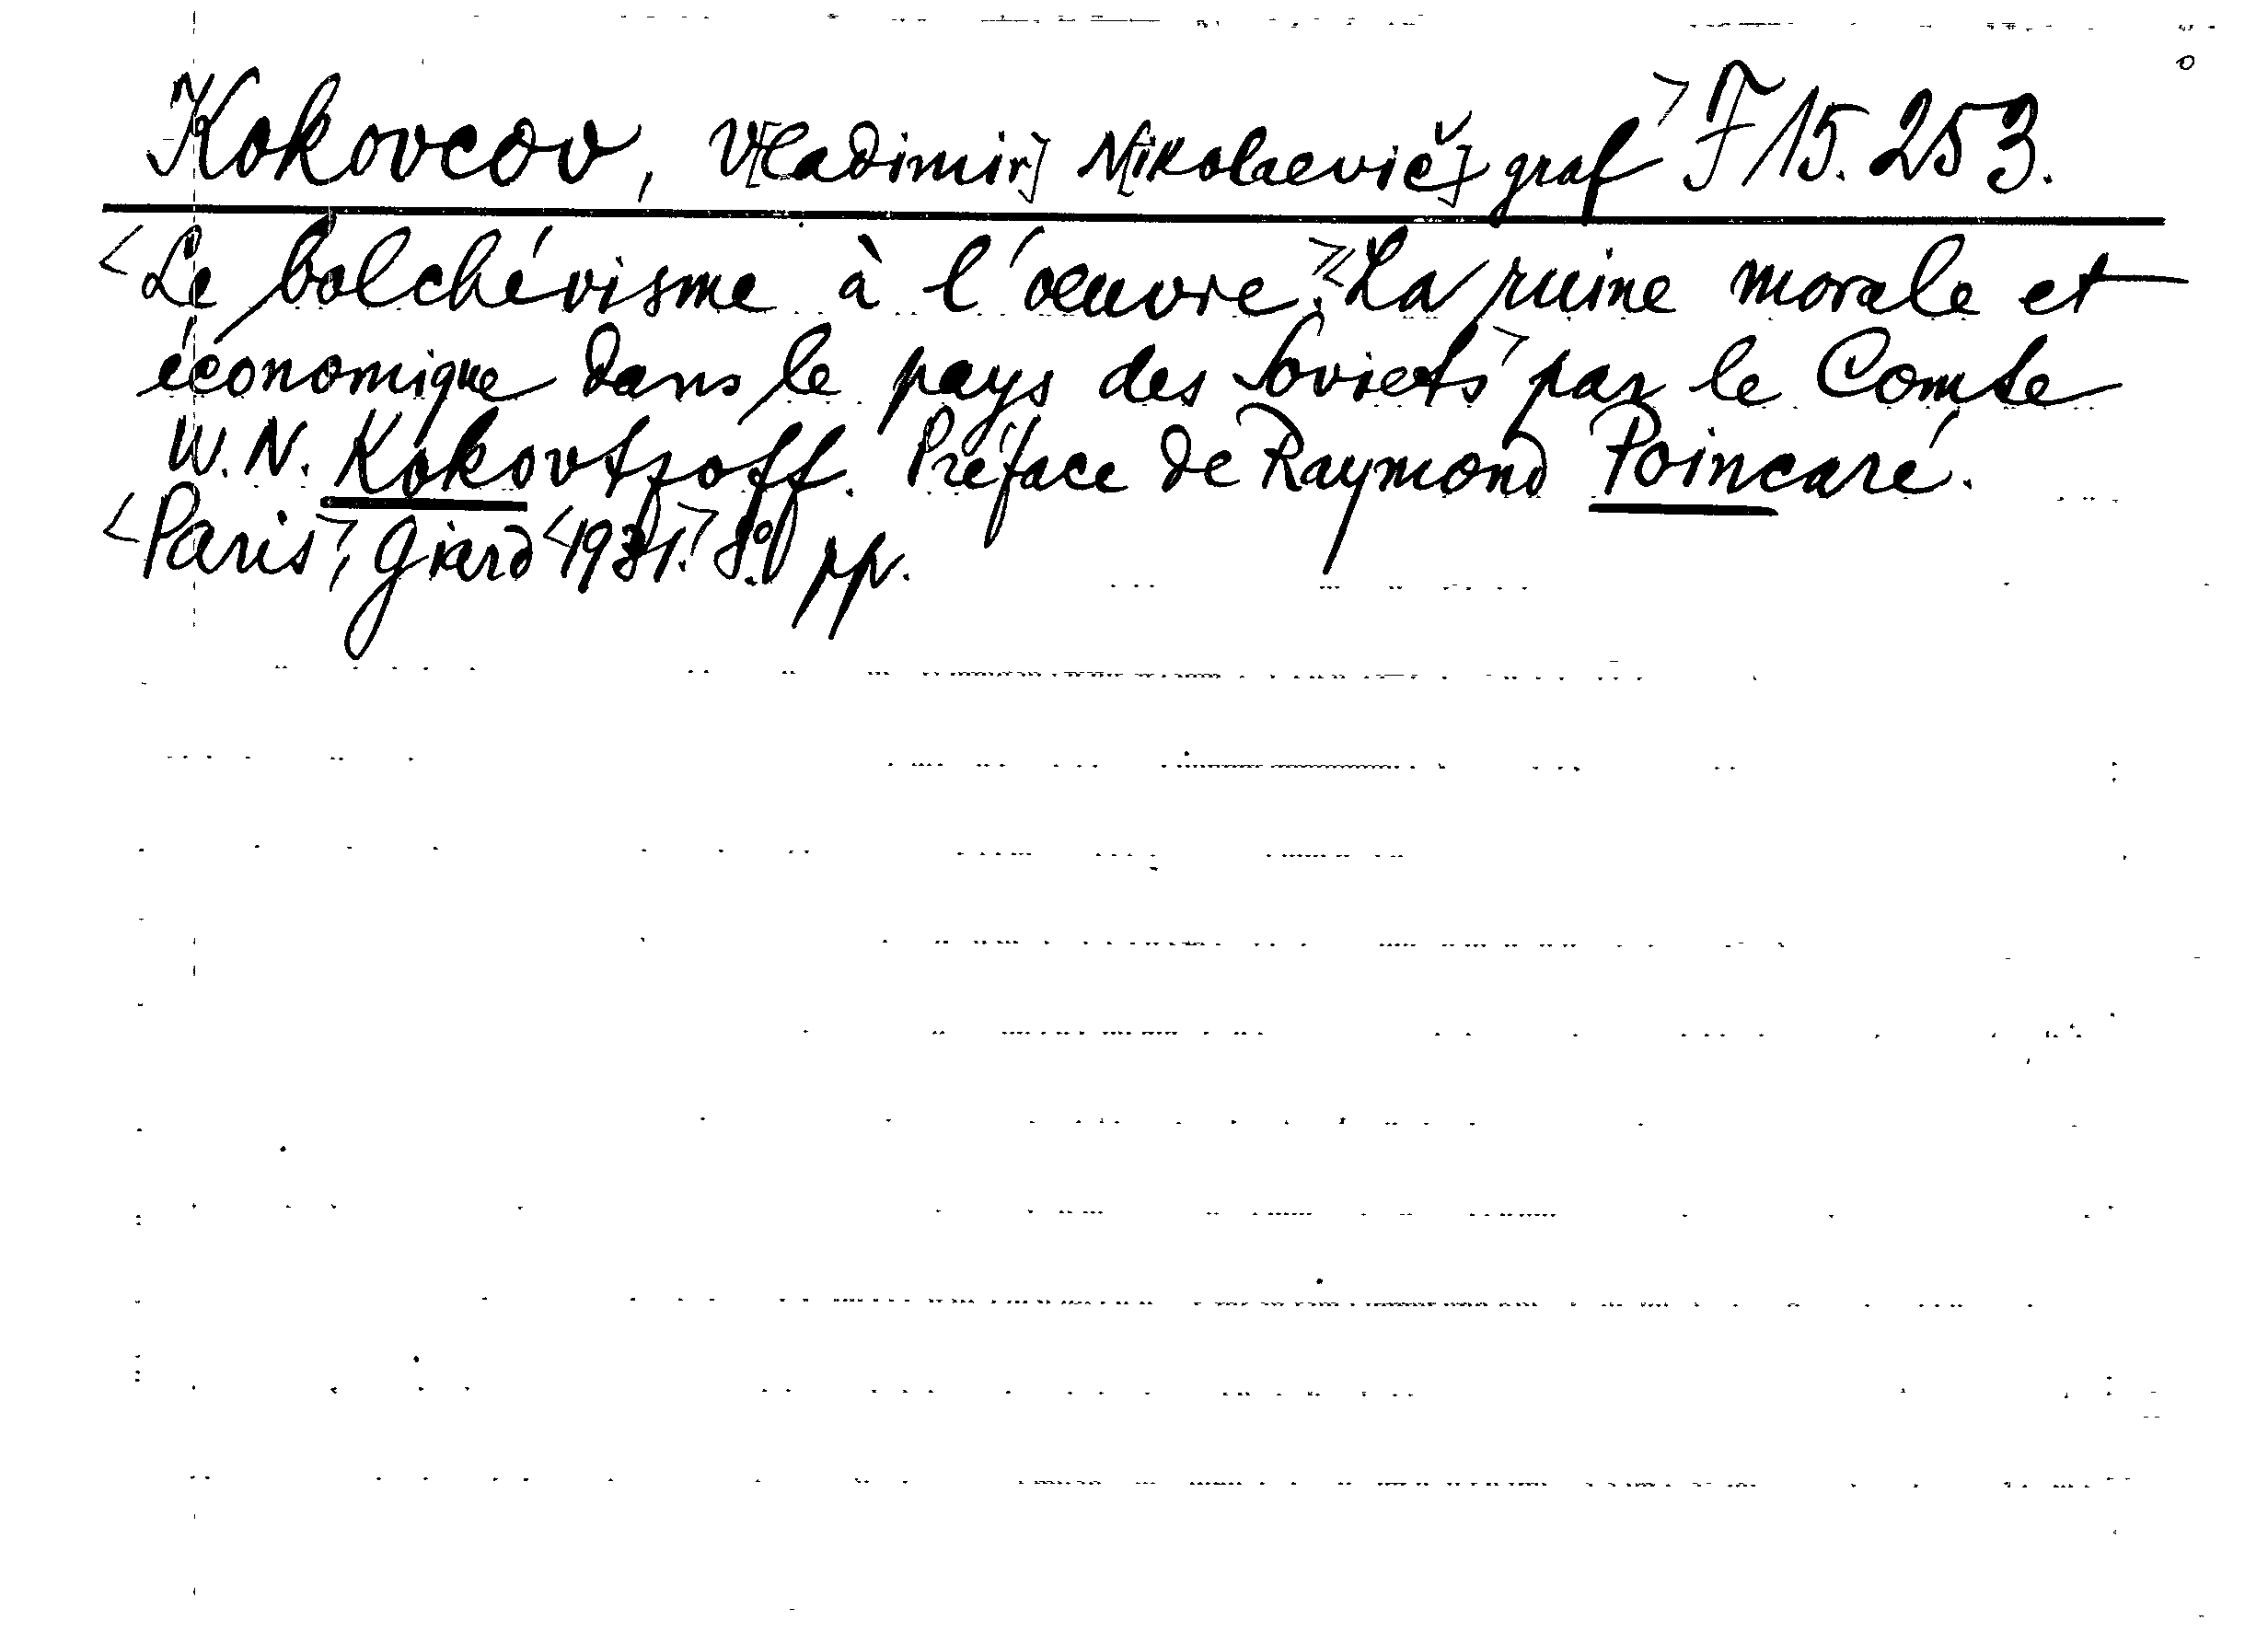 Kokovcov, V[ladimir] N[ikolaevič] graf> F 15.253.
<Le bolchévisme à l'œuvre.><La ruine morale et
économique dans le pays des Soviets> par le Comte
W. N. Kokovtzoff. Préface de Raymond Poincaré.
<Paris>, Giard <1931.> 8°. pp.